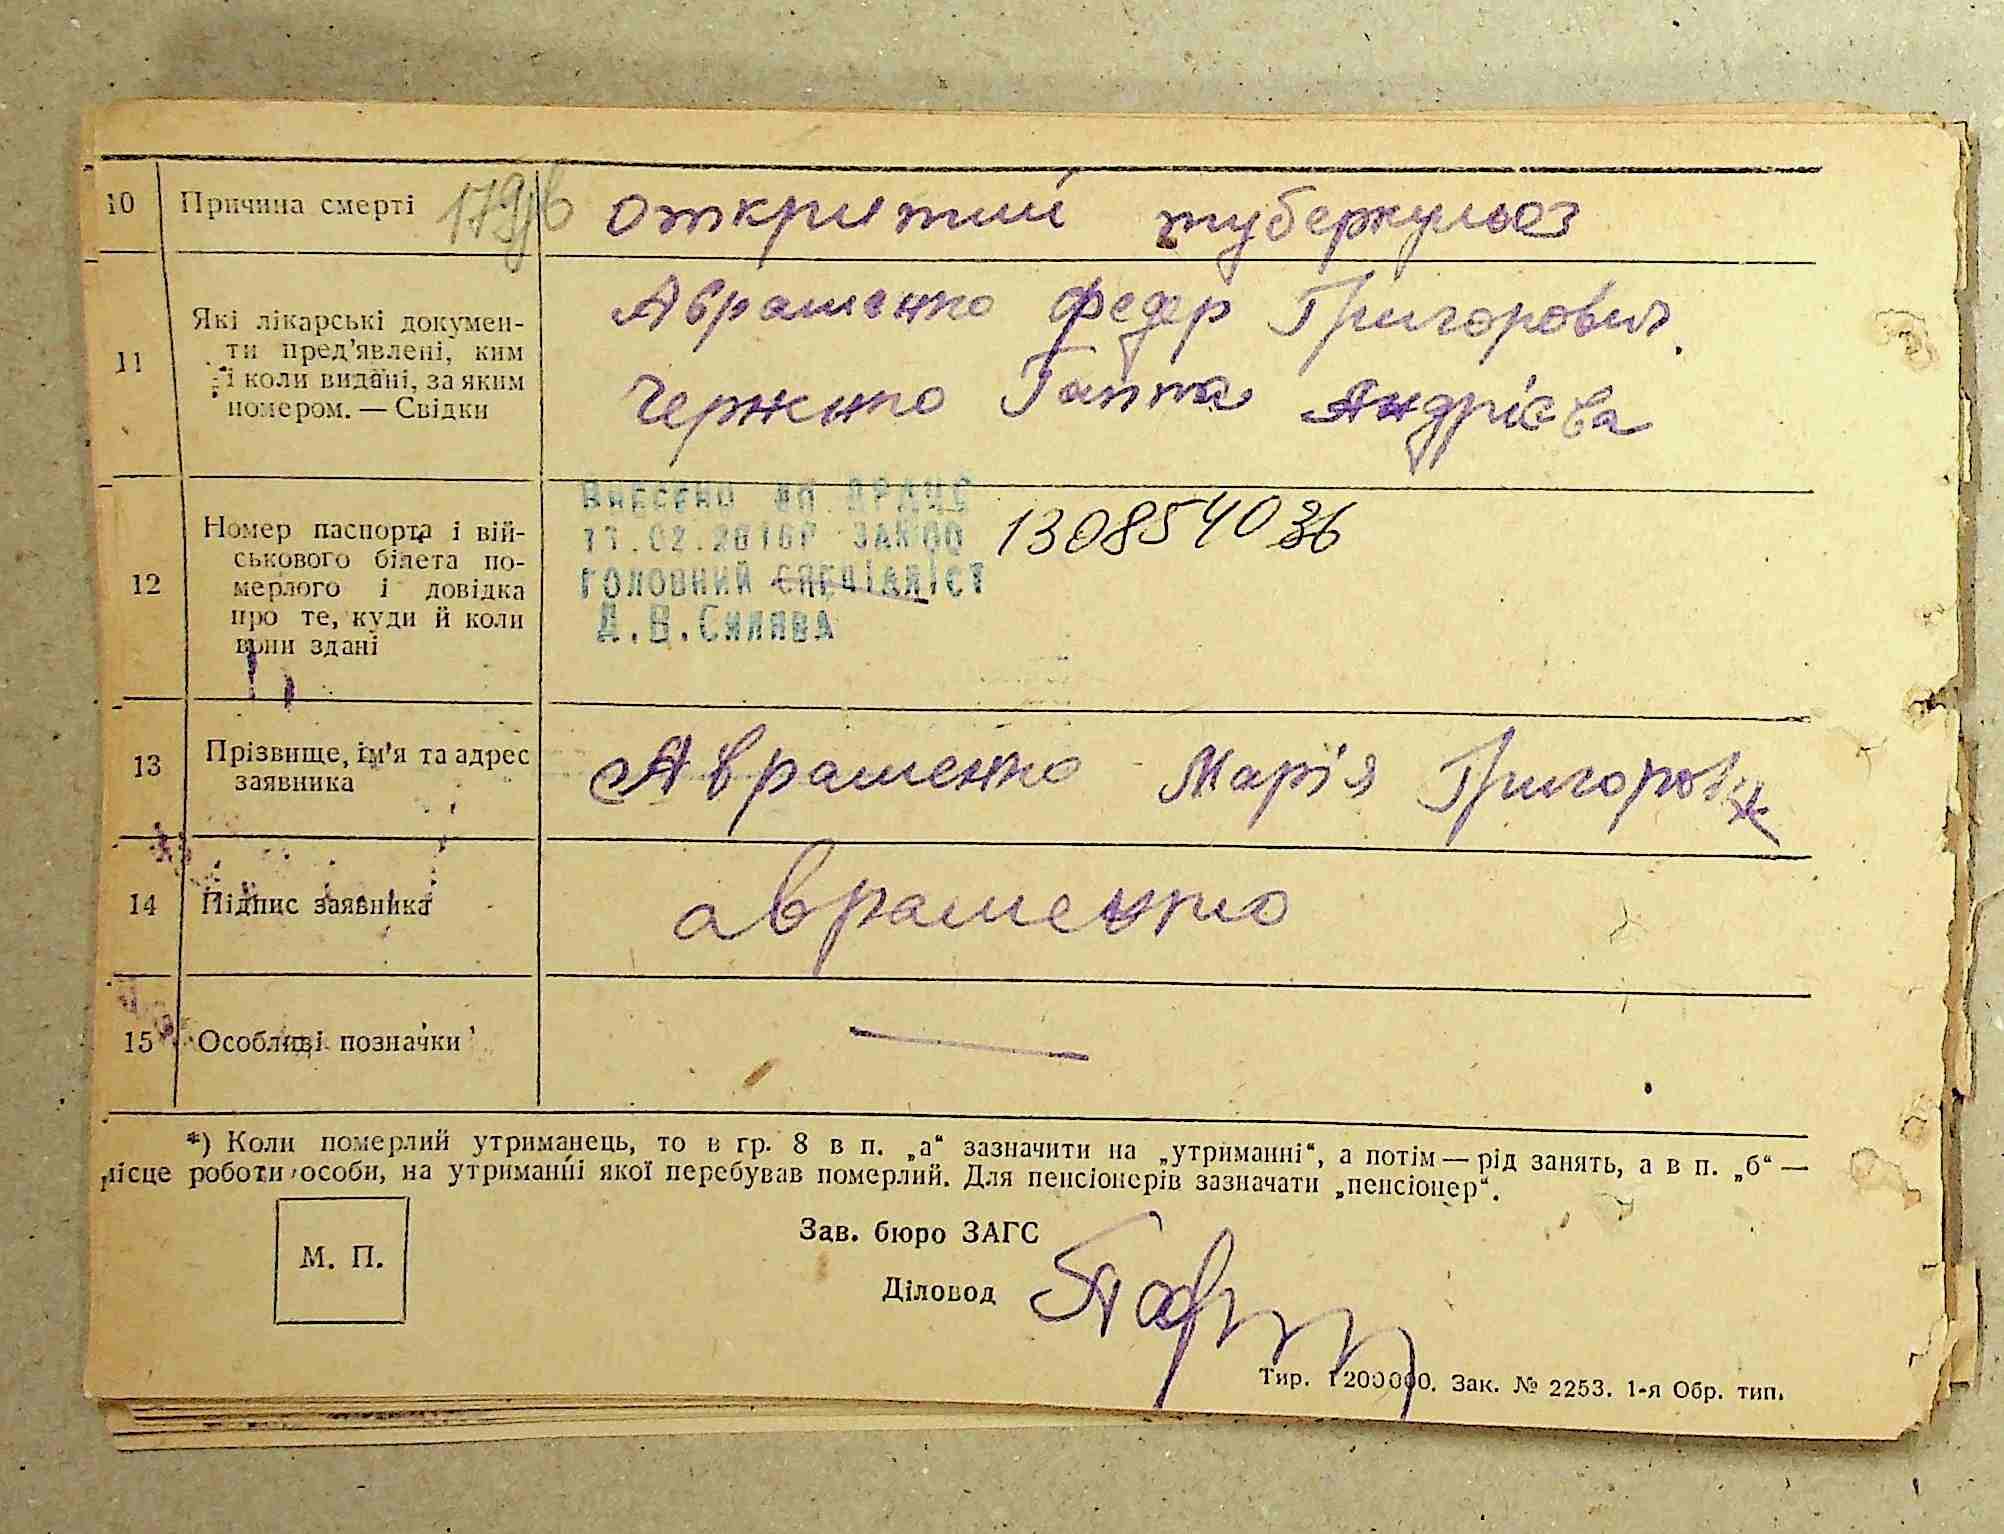 10 Причина смерті 179/б открития туберкульоз
11 Які лікарські докумен-
ти пред'явлені, ким
і коли видані, за яким
номером. — Свідки
Аврашенко Федер Григорович.
Андрієва
12 Номер паспорта і вій-
ськового білета по-
мерлого і довідка
про те, куди й коли
вони здані
Внесено до ДРАЦС
11.02.2016р
130854036
головний спеціаліст
Д.В.Силява
13 Прізвище, ім'я та адрес
заявника
Аврашенко Марія
14 Підпис заявника аврашенко
15 Особливі позначки —
*) Коли померлий утриманець, то в гр. 8 в п. „а“ зазначити на „утриманні“, а потім — рід занять, а в п. „б“ —
місце роботи особи, на утриманні якої перебував померлий. Для пенсіонерів зазначати „пенсіонер“.
М. П.
Зав. бюро ЗАГС
Діловод
Тир. 1200000. Зак. № 2253. 1-я Обр. тип.